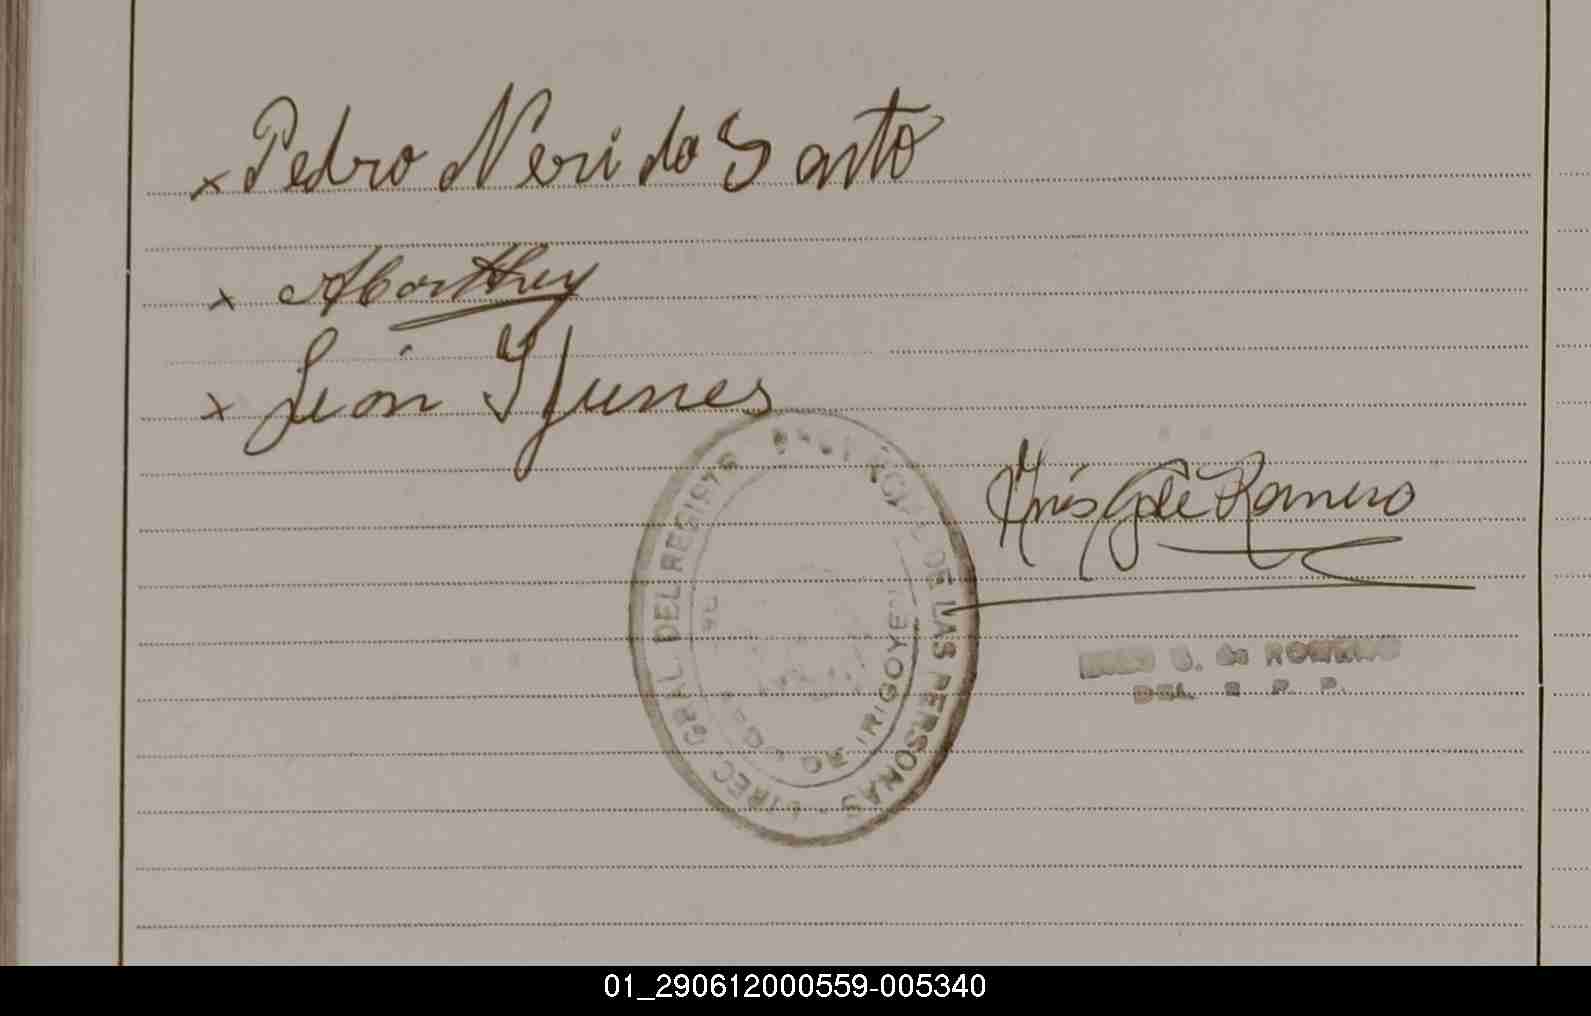 x Pedro Neri do Santo
x
x León Y Funes
Inés G de Romero
DIREC. GRAL. DEL REGISTRO PROVINCIAL DE LAS PERSONAS
DE IRIGOYEN
G. de ROMERO
DEL R P P.
01_290612000559-005340